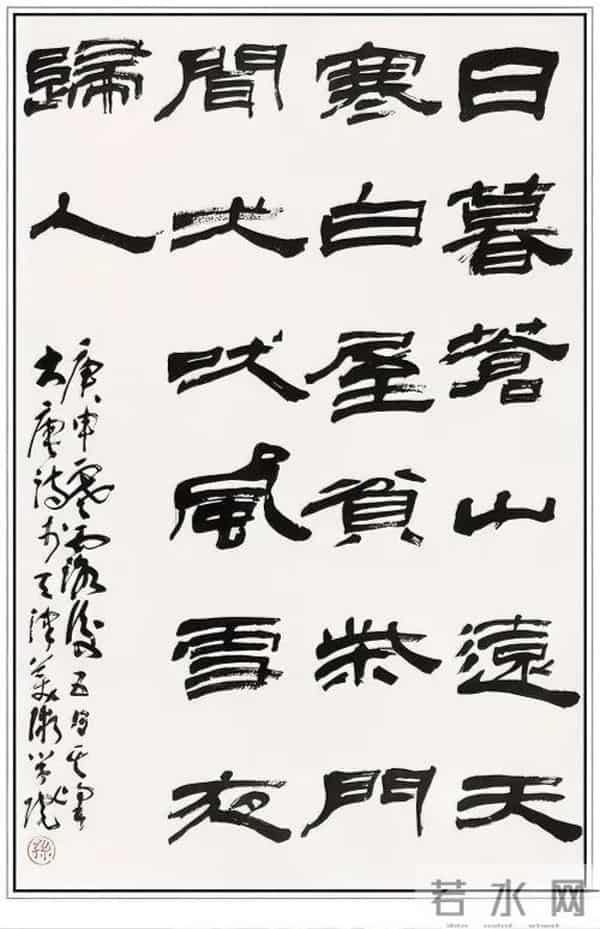 日暮蒼山遠天
寒白屋貧柴門
聞犬吠風雪夜
歸人
庚申寒露後五日其峯
書唐詩於天津美術學院
孫
若水网